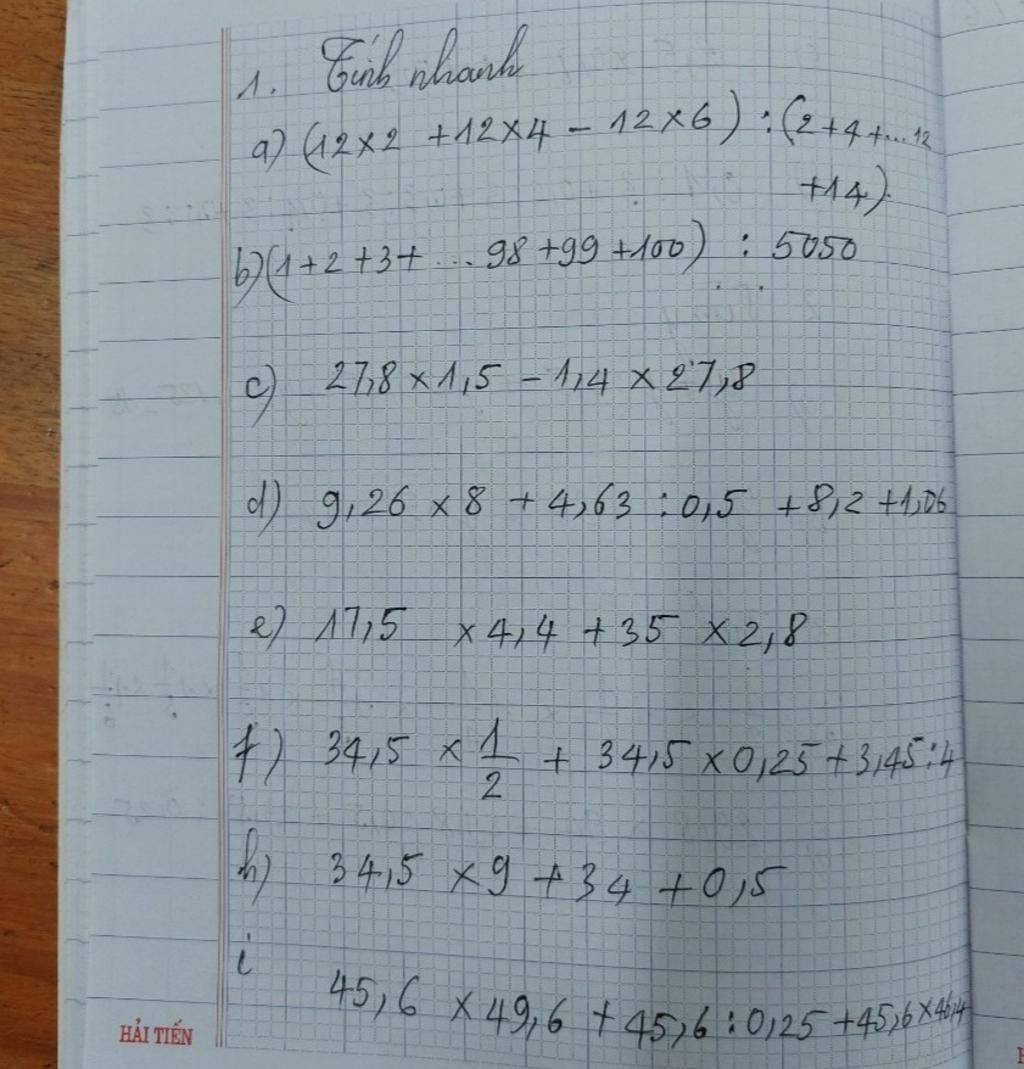 1. Tính nhanh
a) (12 × 2 + 12 × 4 - 12 × 6) : (2 + 4 + ... 12
+ 14)
b) (1 + 2 + 3 + ... 98 + 99 + 100) : 5050
c) 27,8 × 1,5 - 1,4 × 27,8
d) 9,26 × 8 + 4,63 : 0,5 + 8,2 + 1,06
e) 17,5 × 4,4 + 35 × 2,8
f) 34,5 × 1/2 + 34,5 × 0,25 + 3,45 : 4
h) 34,5 × 9 + 34 + 0,5
i
45,6 × 49,6 + 45,6 : 0,25 + 45,6 × 46,4
HẢI TIẾN